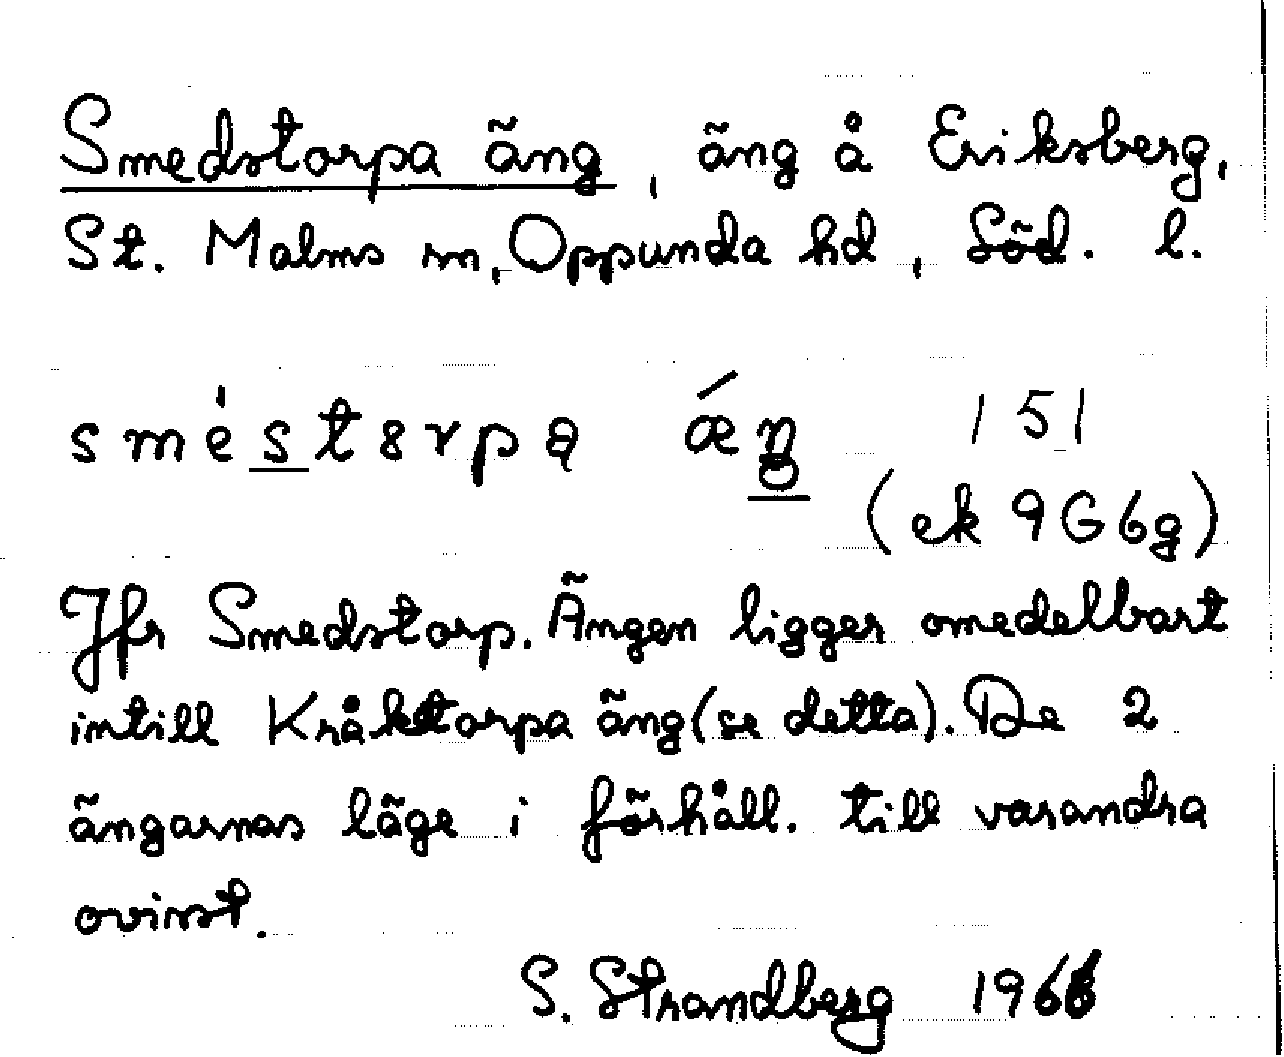 Smedstorpa äng, äng å Eriksberg,
St. Malms sn, Oppunda hd, Söd. l.
smèstorpa ǽŋ 151
(ek 9G6g)
Jfr Smedstorp. Ängen ligger omedelbart
intill Kråktorpa äng (se detta). De 2
ängarnas läge i förhåll. till varandra
ovisst.
S. Strandberg 1966